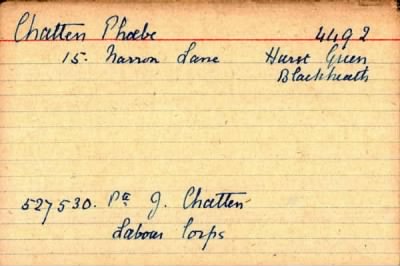 Chatten Phoebe 4492
15. Narrow Lane Hurst Green
Blackheath
527530. Pte J. Chatten
Labour Corps